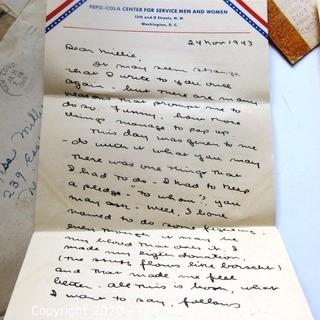 PEPSI-COLA CENTER FOR SERVICE MEN AND WOMEN
13th and G Streets, N. W.
Washington, D. C.
24 Nov 1943
Dear Millie,
It may seem strange
that I write to you once
again - but there are many
reasons that prompt me to
do so. Funny, how those
things manage to pop up.
This day was given to me
- do with it what you may
there was one thing that
I had to do - I had to keep
a pledge - "to whom", you
may ask - well, I have
vowed to do some fighting -
even though it may be
my blood that does it. I
made my eighth donation.
(the stuff flows like borscht)
and that made me feel
better. All this is bosh, what
I want to say, follows
Miss Millie
239 Ea
© 2020